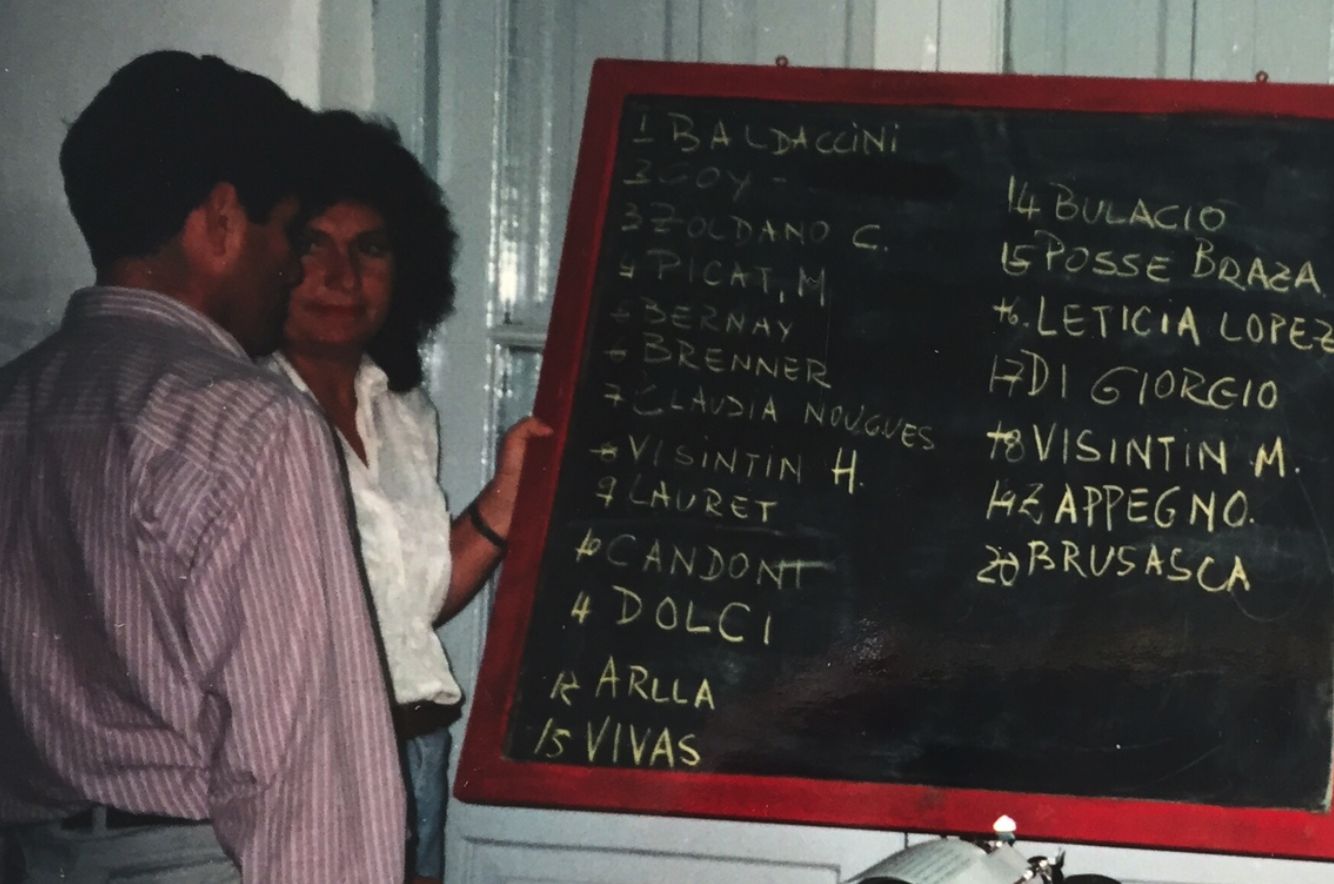 1 BALDACCINI
3 GOY -
3 ZOLDANO C.
4 PICAT, M
5 BERNAY
6 BRENNER
7 CLAUDIA NOUGUES
8 VISINTIN H.
9 LAURET
10 CANDONI
11 DOLCI
12 ARLLA
13 VIVAS
14 BULACIO
15 POSSE BRAZA
16. LETICIA LOPEZ
17 DI GIORGIO
18 VISINTIN M.
19 ZAPPEGNO.
20 BRUSASCA